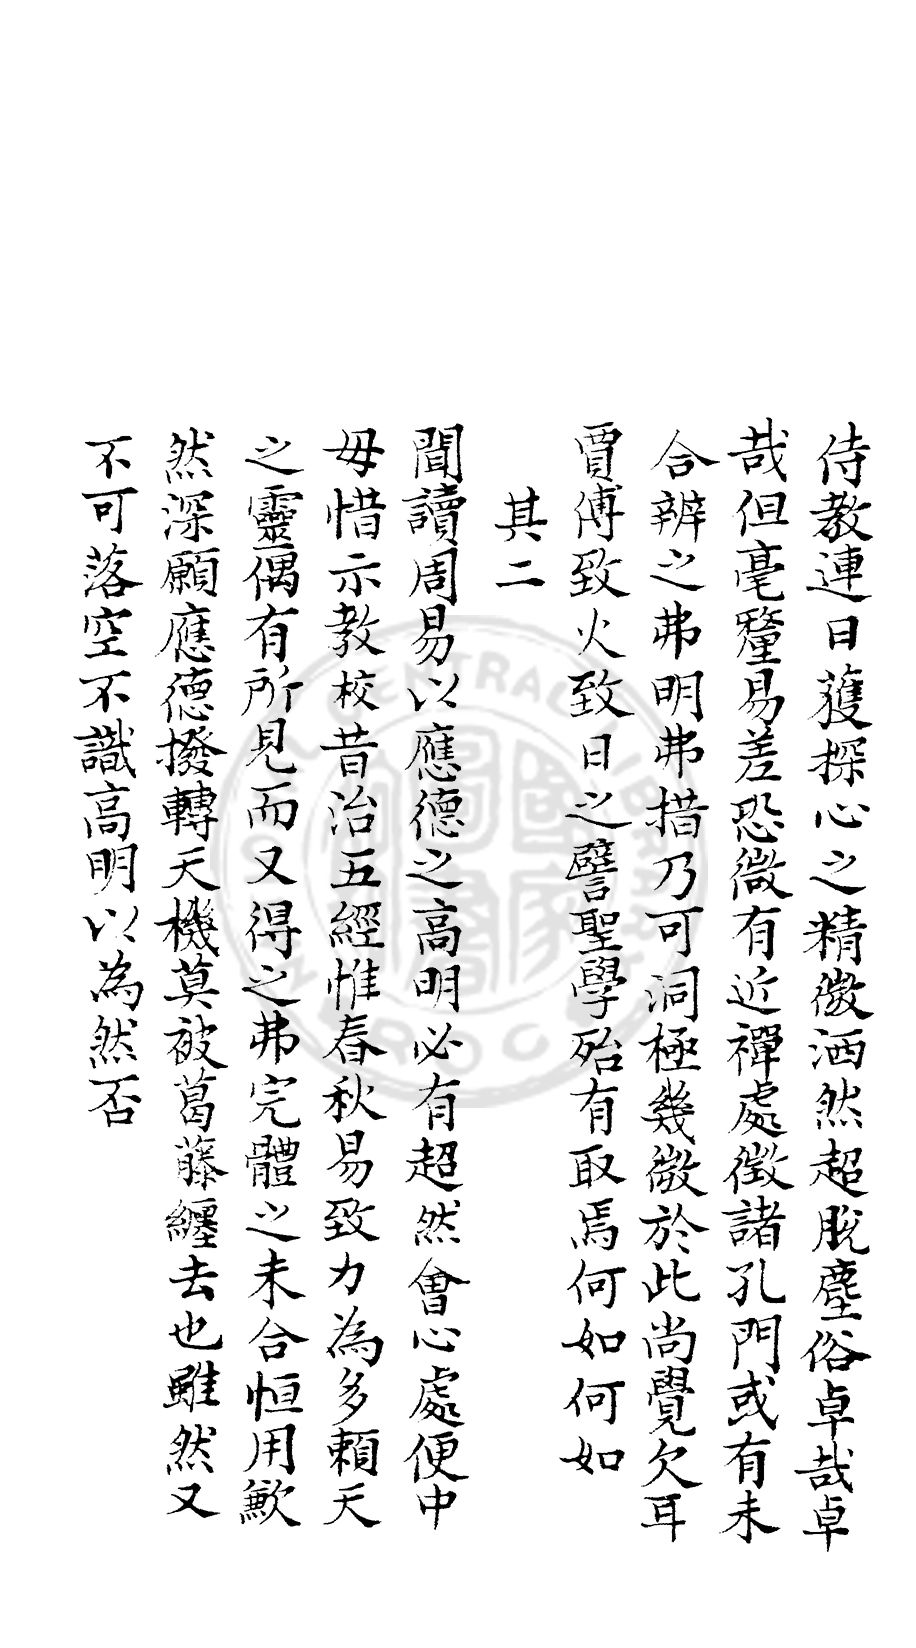 侍教連日獲探心之精微洒然超脫塵俗卓哉卓
哉但毫釐易差恐微有近禪處徵諸孔門或有未
合辨之弗明弗措乃可洞極幾微於此尚覺欠耳
賈傅致火致日之譬聖學殆有取焉何如何如
其二
聞讀周易以應德之高明必有超然會心處便中
毋惜示教校昔治五經惟春秋易致力為多賴天
之靈偶有所見而又得之弗完體之未合恒用歉
然深願應德撥轉天機莫被葛藤纏去也雖然又
不可落空不識高明以為然否